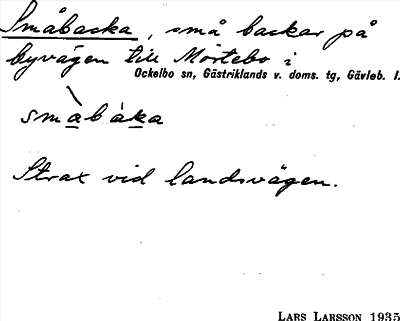 Småbacka, små backar på
byvägen till Mörtebo i
Ockelbo sn, Gästriklands v. doms. tg, Gävleb. l.
småbàka
Strax vid landsvägen.
LARS LARSSON 1935